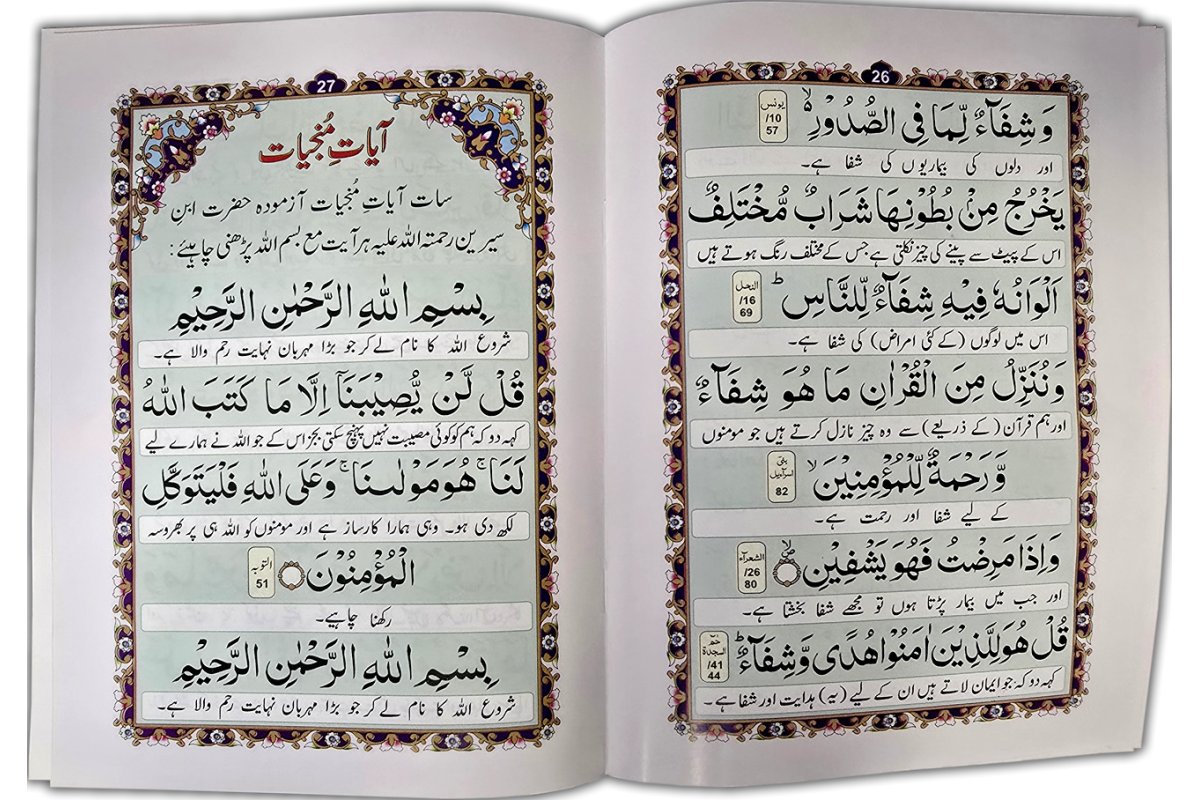 26
وَشِفَآءٌ لِّمَا فِی الصُّدُوْرِۙ
یونس
10/
57
اور دلوں کی بیماریوں کی شفا ہے۔
یَخْرُجُ مِنْۢ بُطُوْنِهَا شَرَابٌ مُّخْتَلِفٌ
اس کے پیٹ سے پینے کی چیز نکلتی ہے جس کے مختلف رنگ ہوتے ہیں
اَلْوَانُهٗ فِیْهِ شِفَآءٌ لِّلنَّاسِ ؕ
النحل
16/
69
اس میں لوگوں (کے کئی امراض) کی شفا ہے۔
وَنُنَزِّلُ مِنَ الْقُرْاٰنِ مَا هُوَ شِفَآءٌ
اور ہم قرآن (کے ذریعے) سے وہ چیز نازل کرتے ہیں جو مومنوں
وَّ رَحْمَةٌ لِّلْمُؤْمِنِیْنَ ۙ
بنیٓ
اسرآءیل
82
کے لیے شفا اور رحمت ہے۔
وَاِذَا مَرِضْتُ فَهُوَ یَشْفِیْنِ
الشعرآء
26/
80
اور جب میں بیمار پڑتا ہوں تو مجھے شفا بخشتا ہے۔
قُلْ هُوَ لِلَّذِیْنَ اٰمَنُوْا هُدًی وَّشِفَآءٌ ؕ
حٰمٓ
السجدة
41/
44
کہہ دو کہ جو ایمان لاتے ہیں ان کے لیے (یہ) ہدایت اور شفا ہے۔
27
آیاتِ مُنجیات
سات آیاتِ مُنجیات آزمودہ حضرت ابنِ
سیرین رحمتہ اللہ علیہ ہر آیت مع بسم اللہ پڑھنی چاہیئے:
بِسْمِ اللّٰهِ الرَّحْمٰنِ الرَّحِیْمِ
شروع اللہ کا نام لے کر جو بڑا مہربان نہایت رحم والا ہے۔
قُلْ لَّنْ یُّصِیْبَنَاۤ اِلَّا مَا كَتَبَ اللّٰهُ
کہہ دو کہ ہم کو کوئی مصیبت نہیں پہنچ سکتی بجز اس کے جو اللہ نے ہمارے لیے
لَنَا ۚ هُوَ مَوْلٰىنَا ۚ وَعَلَی اللّٰهِ فَلْیَتَوَكَّلِ
لکھ دی ہو۔ وہی ہمارا کارساز ہے اور مومنوں کو اللہ ہی پر بھروسہ
الْمُؤْمِنُوْنَ
التوبہ
51
رکھنا چاہیے۔
بِسْمِ اللّٰهِ الرَّحْمٰنِ الرَّحِیْمِ
شروع اللہ کا نام لے کر جو بڑا مہربان نہایت رحم والا ہے۔